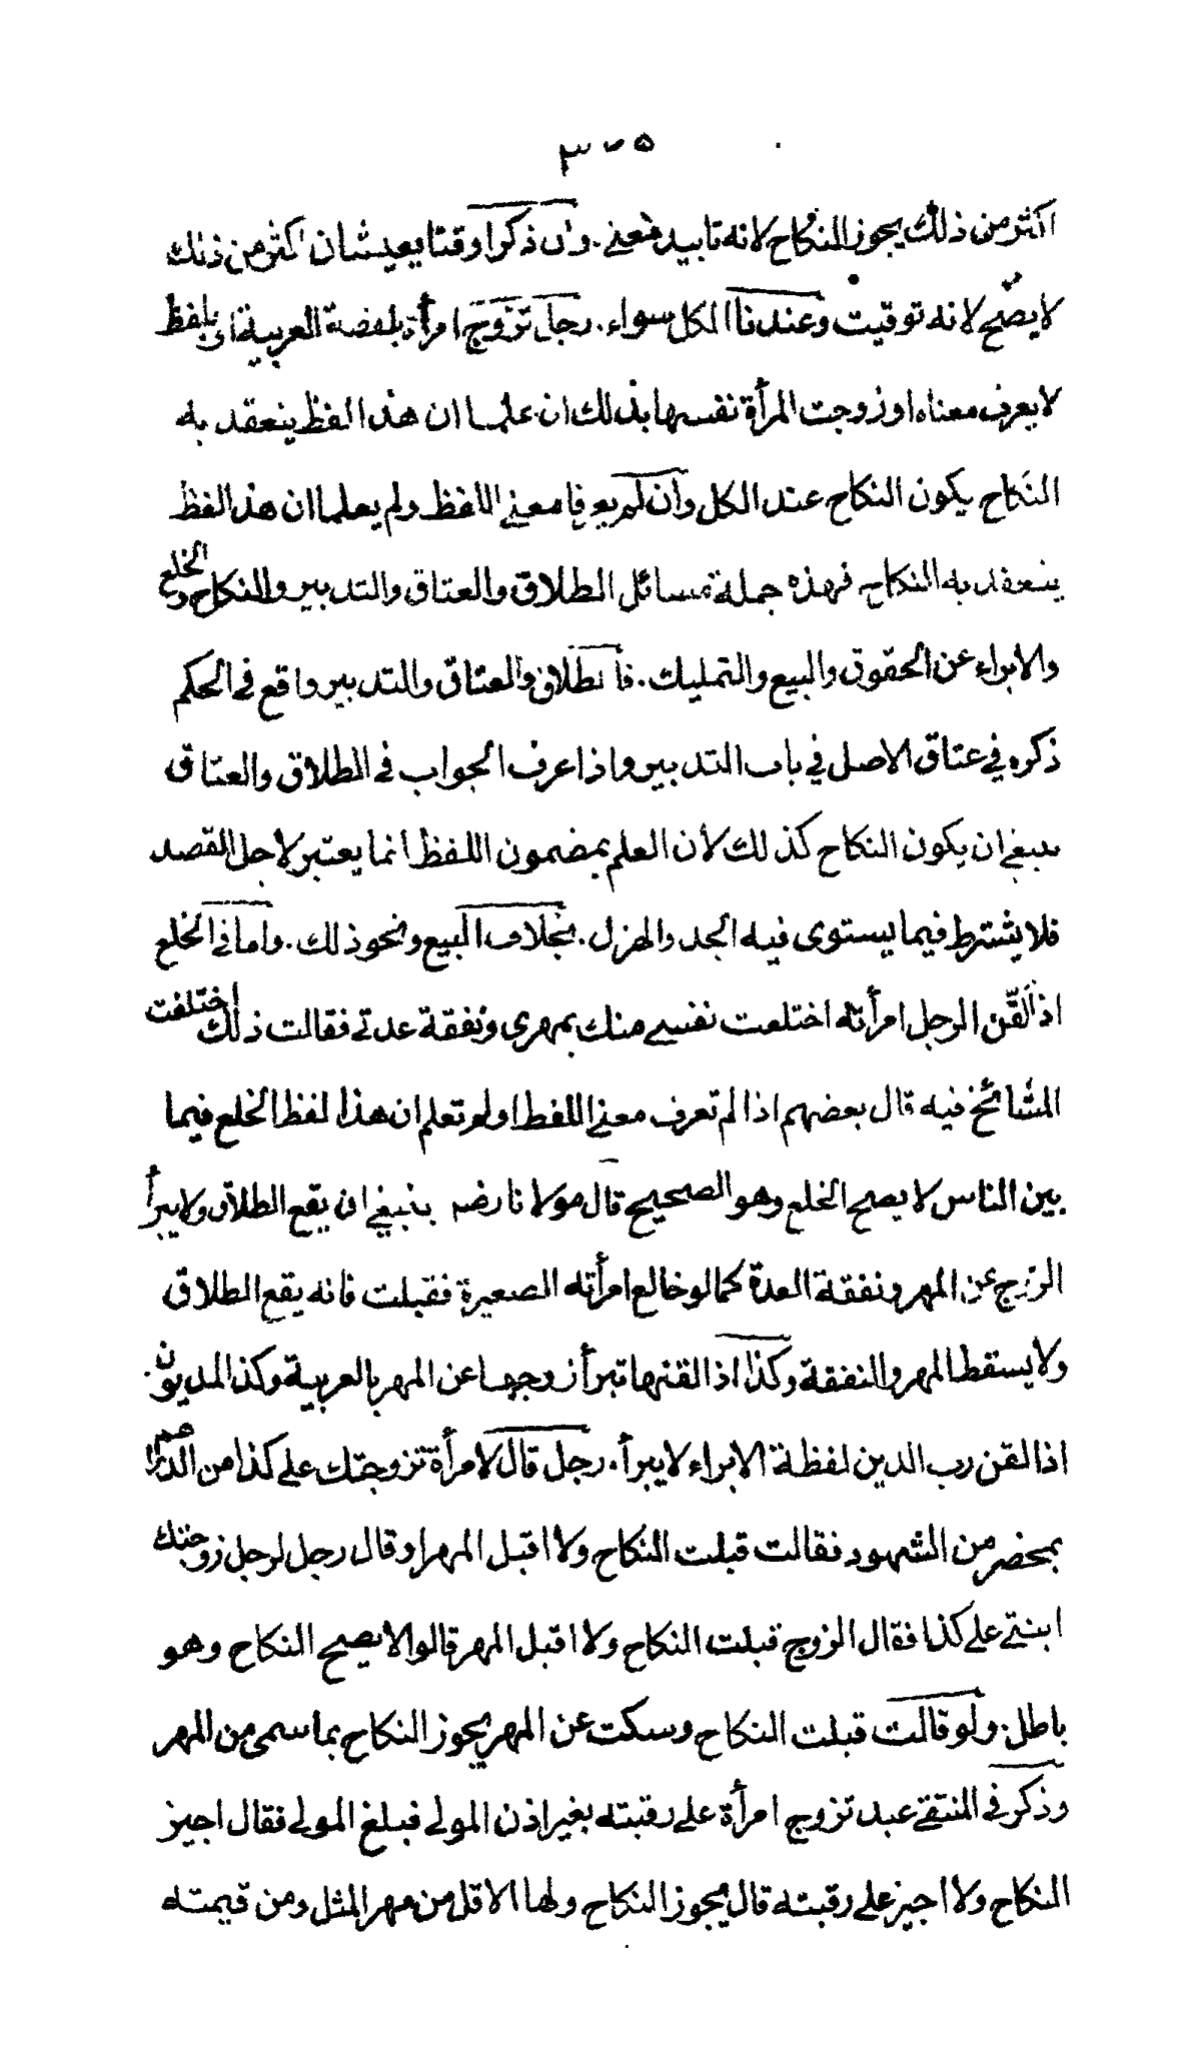 ٣٠٥
اكثر من ذلك يجوز النكاح لانه تابيد معنى. وان ذكرا وقتا يعيشان اكثر من ذلك
لا يصح لانه توقيت وعندنا الكل سواء. رجل تزوج امرأة بلفضة العربية او بلفظ
لا يعرف معناه او زوجت المرأة نفسها بذلك ان علما ان هذا الفظ ينعقد به
النكاح يكون النكاح عند الكل وان لم يعرفا معنى اللفظ ولم يعلما ان هذا الفظ
ينعقد به النكاح فهذه جملة مسائل الطلاق والعتاق والتدبير والنكاح والخلع
والابراء عن الحقوق والبيع والتمليك. فالطلاق والعتاق والتدبير واقع في الحكم
ذكره في عتاق الاصل في باب التدبير واذا عرف الجواب في الطلاق والعتاق
ينبغي ان يكون النكاح كذلك لان العلم بمضمون اللفظ انما يعتبر لاجل القصد
فلا يشترط فيما يستوى فيه الجد والهزل. بخلاف البيع ونحو ذلك. واما في الخلع
اذا لقّن الرجل امرأته اختلعت نفسي منك بمهرى ونفقة عدتي فقالت ذلك اختلفت
المشائخ فيه قال بعضهم اذا لم تعرف معنى اللفط اولم تعلم ان هذا لفظ الخلع فيما
بين الناس لا يصح الخلع وهو الصحيح قال مولانا رضہ ينبغي ان يقع الطلاق ولا يبرأ
الزوج عن المهر ونفقة العدة كما لو خالع امرأته الصعيرة فقبلت فانه يقع الطلاق
ولا يسقط المهر والنفقة وكذا اذا لقنها تبرأ زوجها عن المهر بالعربية وكذا المديون
اذا لقن رب الدين لفظة الابراء لا يبرأ. رجل قال لامرأة تزوجتك على كذا من الدراهم
بمحضر من الشهود فقالت قبلت النكاح ولا اقبل المهر او قال رجل لرجل زوجتك
ابنتي على كذا فقال الزوج قبلت النكاح ولا اقبل المهر قالوا لا يصح النكاح وهو
باطل. ولو قالت قبلت النكاح وسكت عن المهر يجوز النكاح بما سمى من المهر
وذكر في المنتقى عبد تزوج امرأة على رقبته بغير اذن المولى فبلغ المولى فقال اجيز
النكاح ولا اجيز على رقبته قال يجوز النكاح ولها الاقل من مهر المثل ومن قيمته